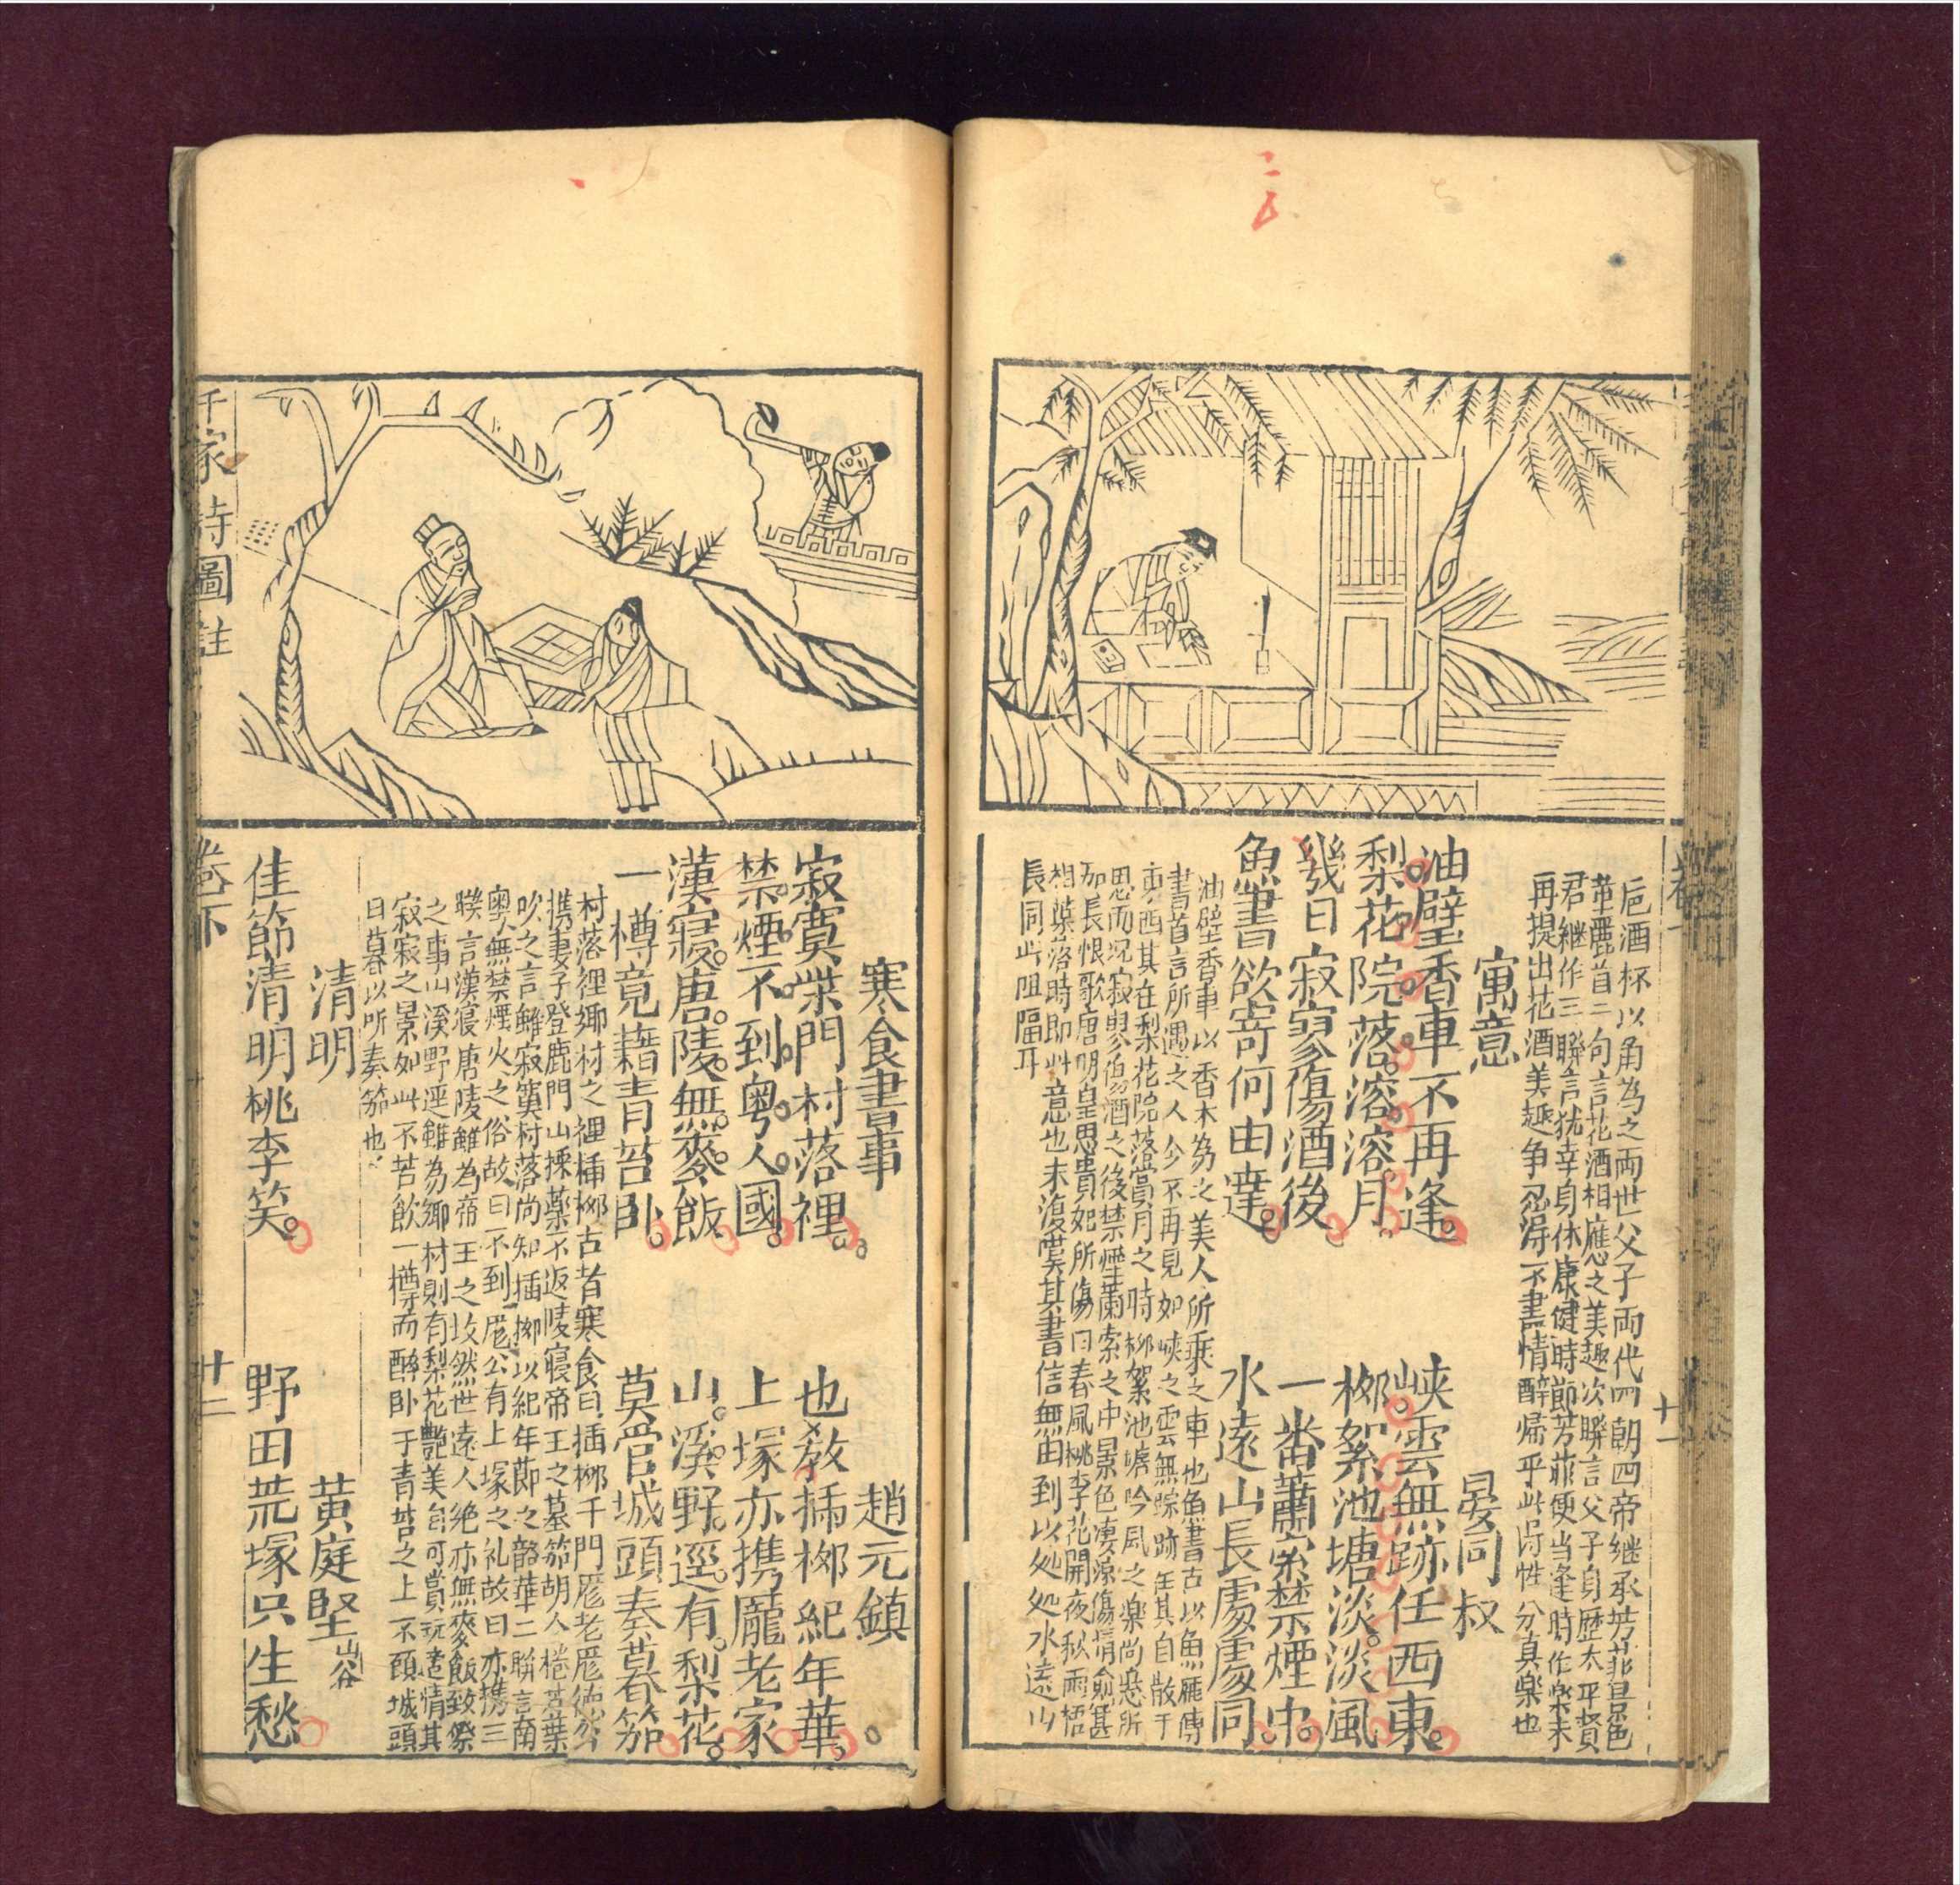 巵酒杯以角為之両世父子両代四朝四帝継承芳菲景色
華麗首二句言花酒相應之美趣次聯言父子身歴太平賢
君継作三聯言犹幸身休康健時節芳菲便当逢時作楽末
再提出花酒美趣争忍淂不盡情醉帰乎此詩性分真楽也
寓意 晏同叔
油壁香車不再逢。 峽雲無跡任西東。
梨花院落溶溶月 桞絮池塘淡淡風
幾日寂寥傷酒後 一番蕭索禁煙中。
魚書欲寄何由達。 水遠山長處處同。
油壁香車以香木為之美人所乘之車也魚書古以魚雁傳
書首言所遇之人今不再見如峽之雲無踪跡任其自散于
東西其在梨花院落當月之時桞絮池塘吟风之楽尚悬所
思而况寂寥伤酒之後禁煙蕭索之中景色凄凉傷情俞甚
如長恨歌唐明皇思貴妃所傷曰春風桃李花開夜秋雨梧
相葉落時即此意也末復嘆其書信無由到以処処水遠山
長同此阻隔耳
卷
十一
寒食書事 趙元鎮
寂寞柴門村落裡。 也教插桞紀年華。
禁煙不到粵人國。 上塚亦携龐老家
漢寢唐陵無麥飯 山溪野逕有梨花。
一樽竟藉青苔卧。 莫管城頭奏暮笳
村落裡鄉村之裡插桞古者寒食日插桞千門厖老厖德公
携妻子登鹿門山採藥不返陵寝帝王之墓笳胡人捲芦葉
吹之言雖寂寞村落尚知插桞以紀年節之韶華二聯言南
奥無禁煙火之俗故曰不到厖公有上塚之礼故曰亦携三
聯言漢寝唐陵雖為帝王之坟然世遠人绝亦無麥飯致祭
之事山溪野逕雖為鄉村則有梨花艷美自可賞玩适情其
寂寂之景如此不若飲一樽而醉卧于青苔之上不顾城頭
日暮以听奏笳也
清明 黃庭堅山谷
佳節清明桃李笑。 野田荒塚只生愁
千家詩圖註
卷下
十二